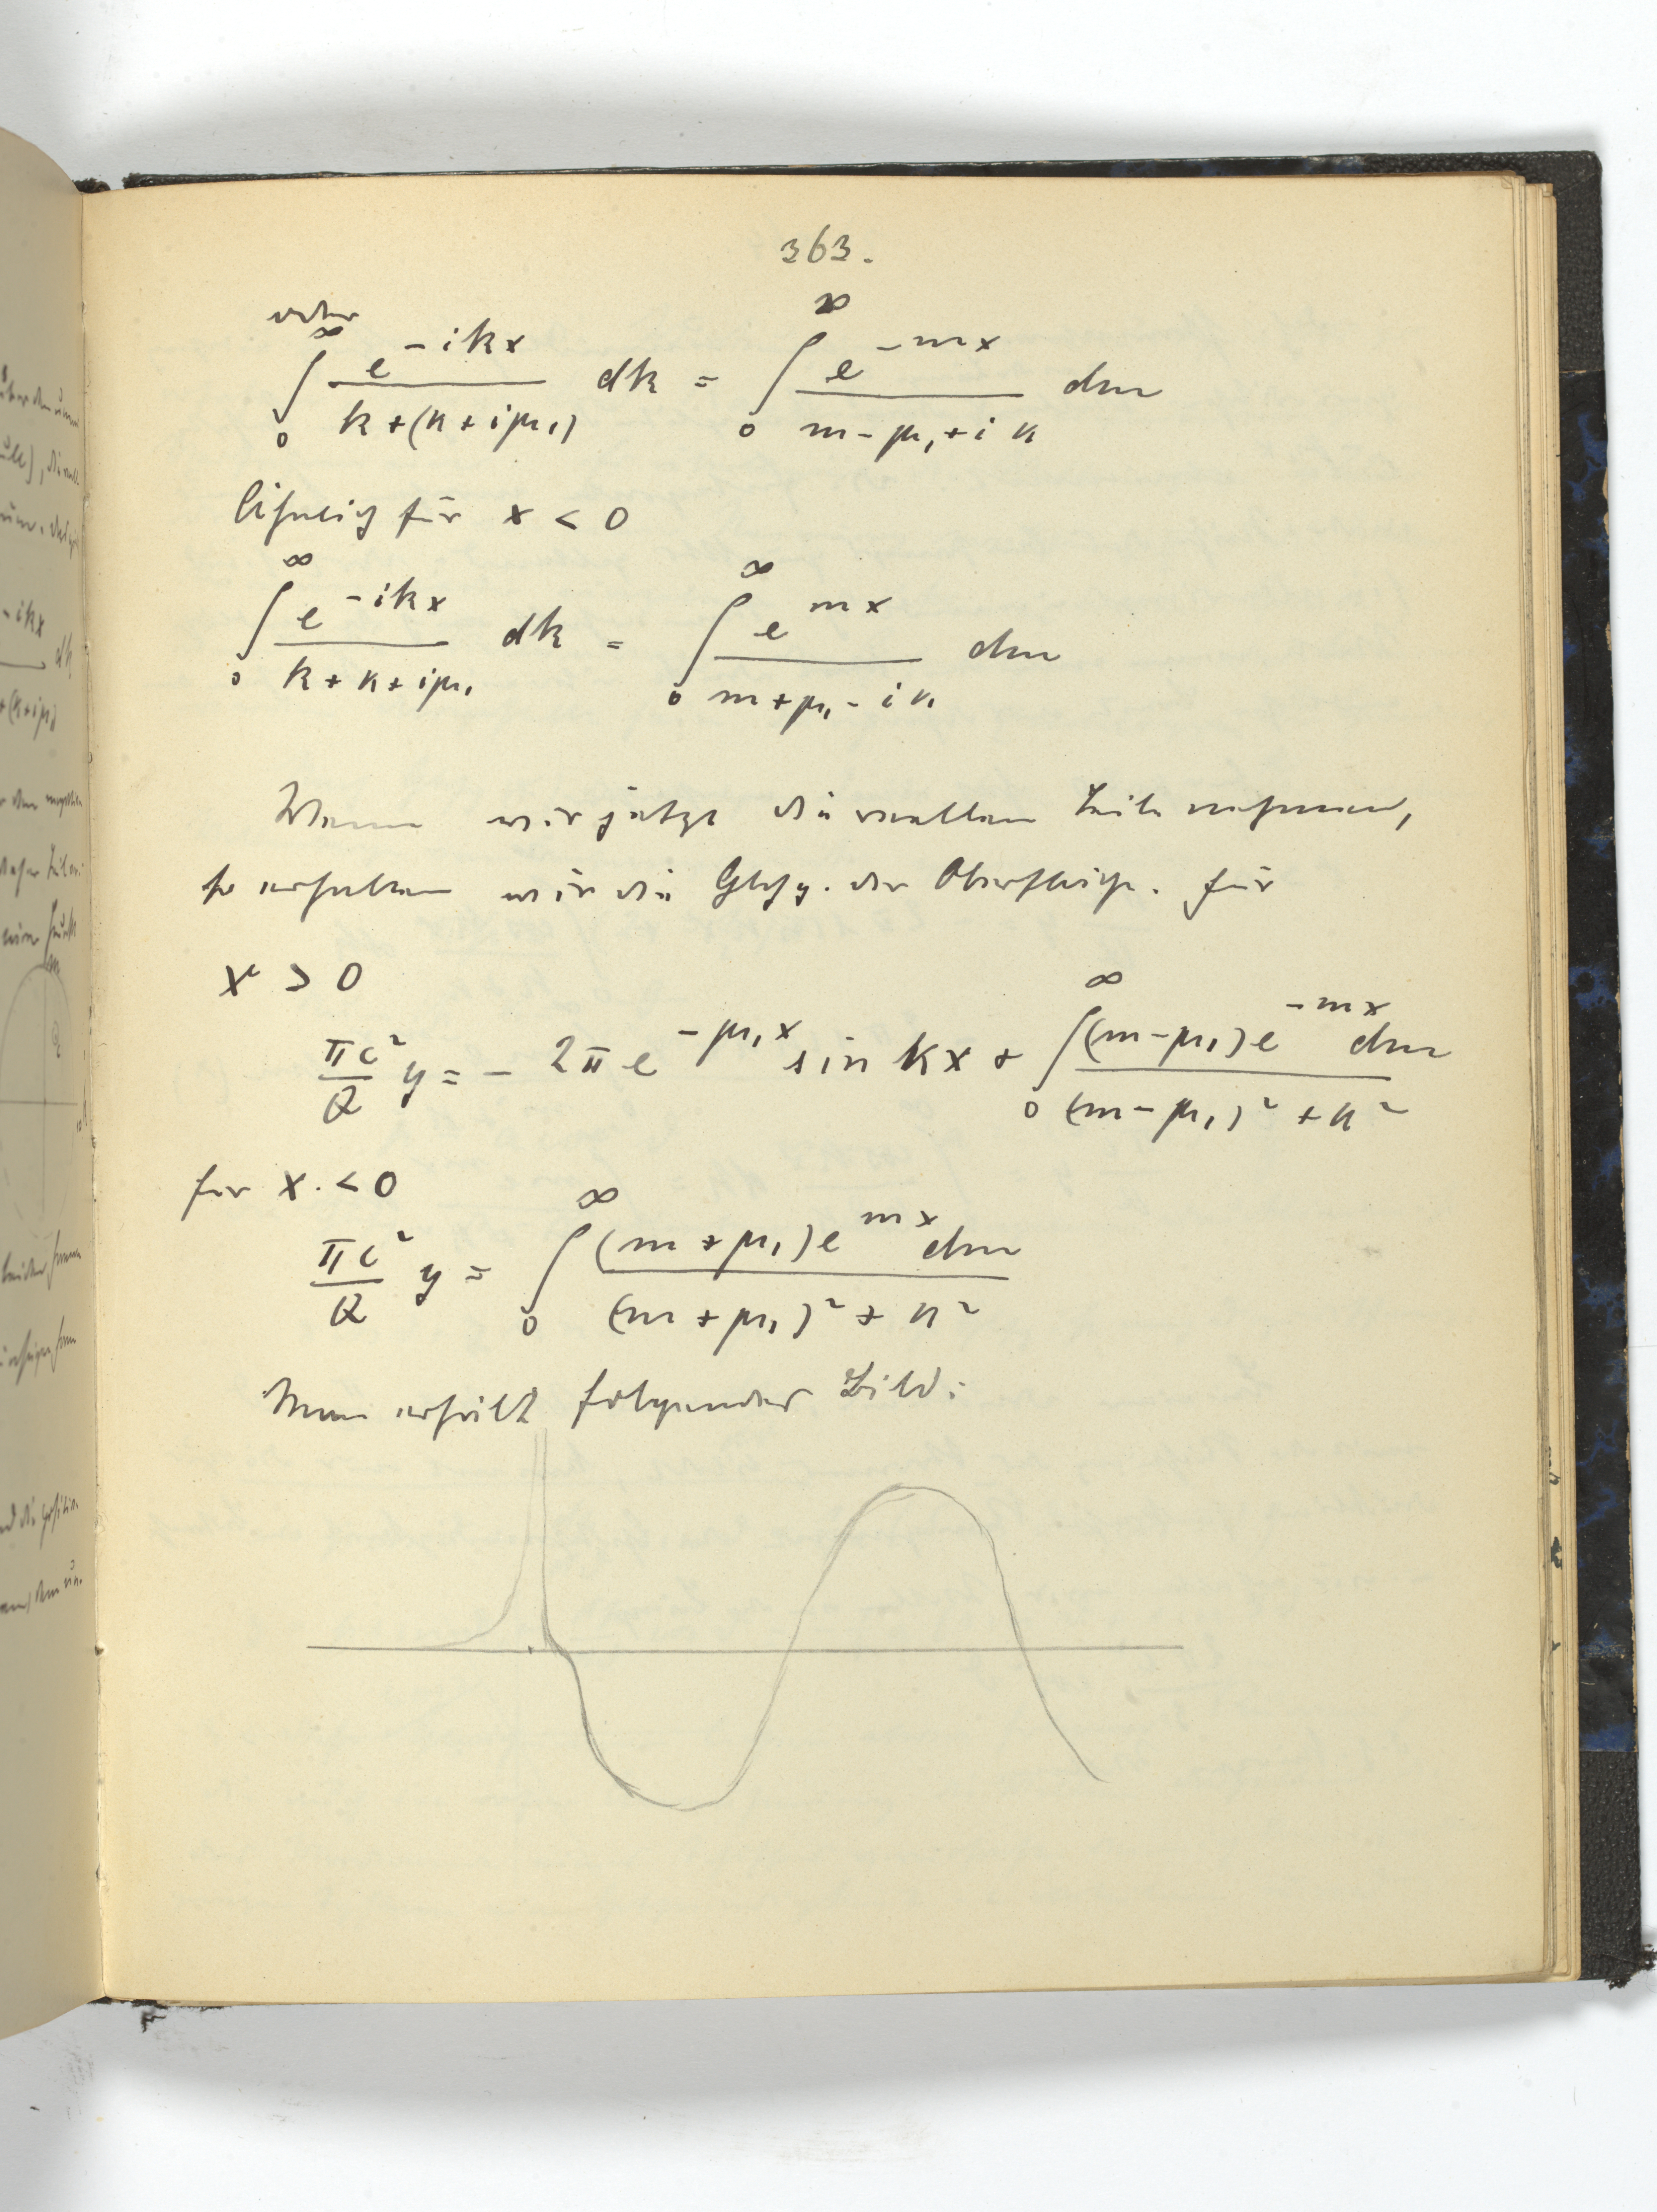 363.
oder
∫₀^∞ e^{-ikx} / (k+(κ+iμ₁)) dk = ∫₀^∞ e^{-mx} / (m-μ₁+iκ) dm
Ähnlich für x < 0
∫₀^∞ e^{-ikx} / (k+κ+iμ₁) dk = ∫₀^∞ e^{mx} / (m+μ₁-iκ) dm
Wenn wir jetzt die reellen Teile nehmen,
so erhalten wir die Glchg. der Oberfläche. für
x > 0
πc²/Q y = - 2π e^{-μ₁x} sin κx + ∫₀^∞ (m-μ₁)e^{-mx} dm / ((m-μ₁)²+κ²)
für x < 0
πc²/Q y = ∫₀^∞ (m+μ₁)e^{mx} dm / ((m+μ₁)²+κ²)
Man erhält folgendes Bild: